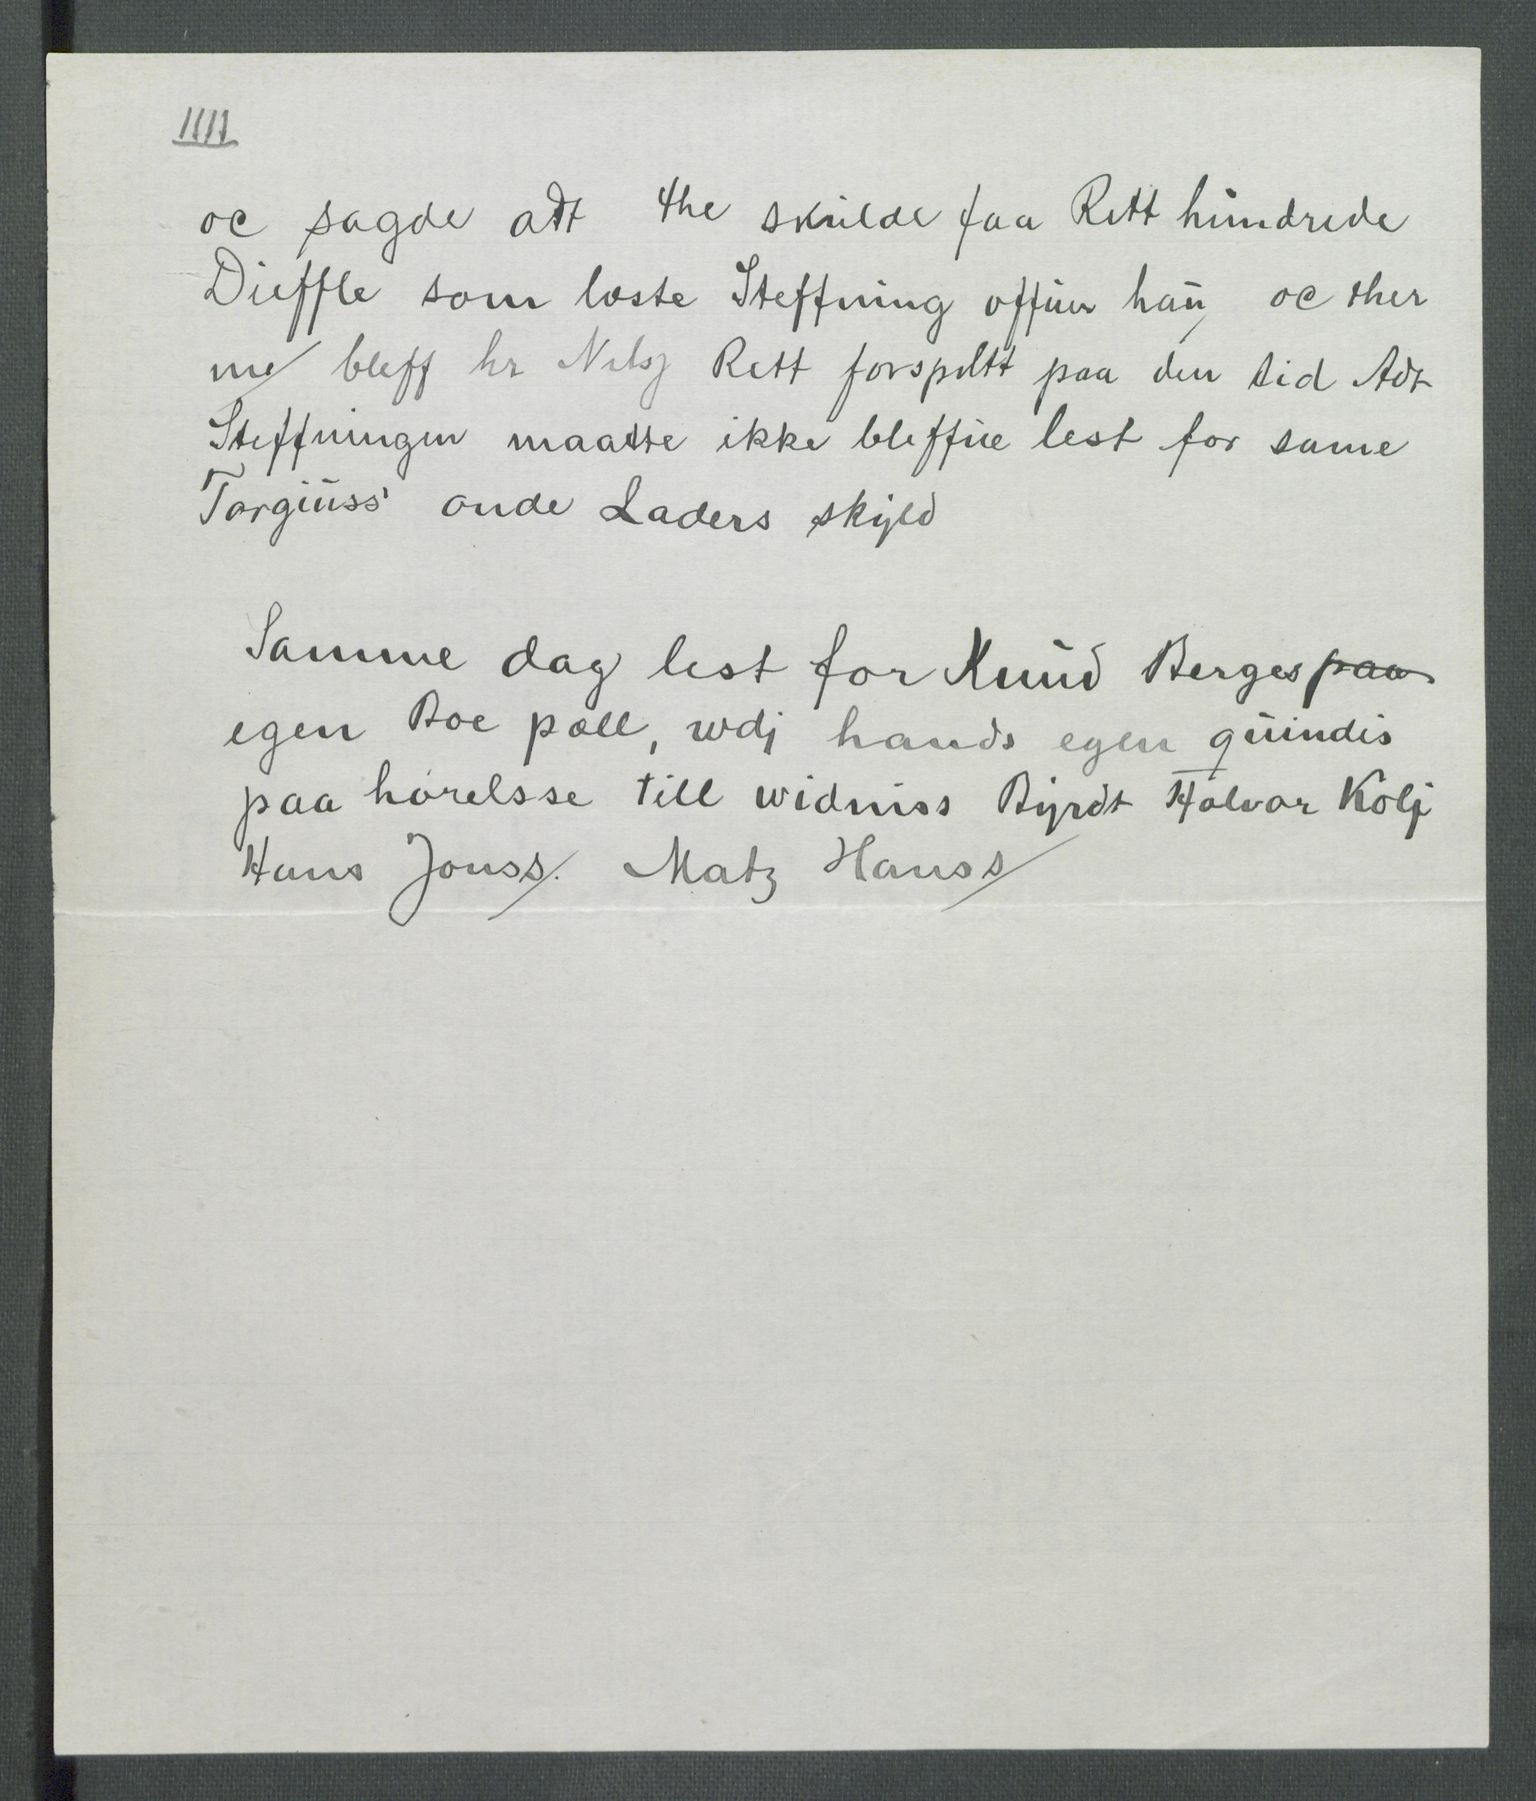 1111
oc sagde adt the skulde faa Rett hundrede
Dieffle som loste Steffning offuer hañ, oc ther
me/ bleff hr Nilsz Rett forspiltt paa den tid Adt
Steffningen maatte ikke bleffue lest for same
Torgiuss' onde Laders skyld
Samme dag lest for Knud Berges paa
egen Boe pæll, wdj hands egen quindis
paa hørelsse till widniss Byrdt Halvor Kolj
Hans Jonss/. Matz Hanss/